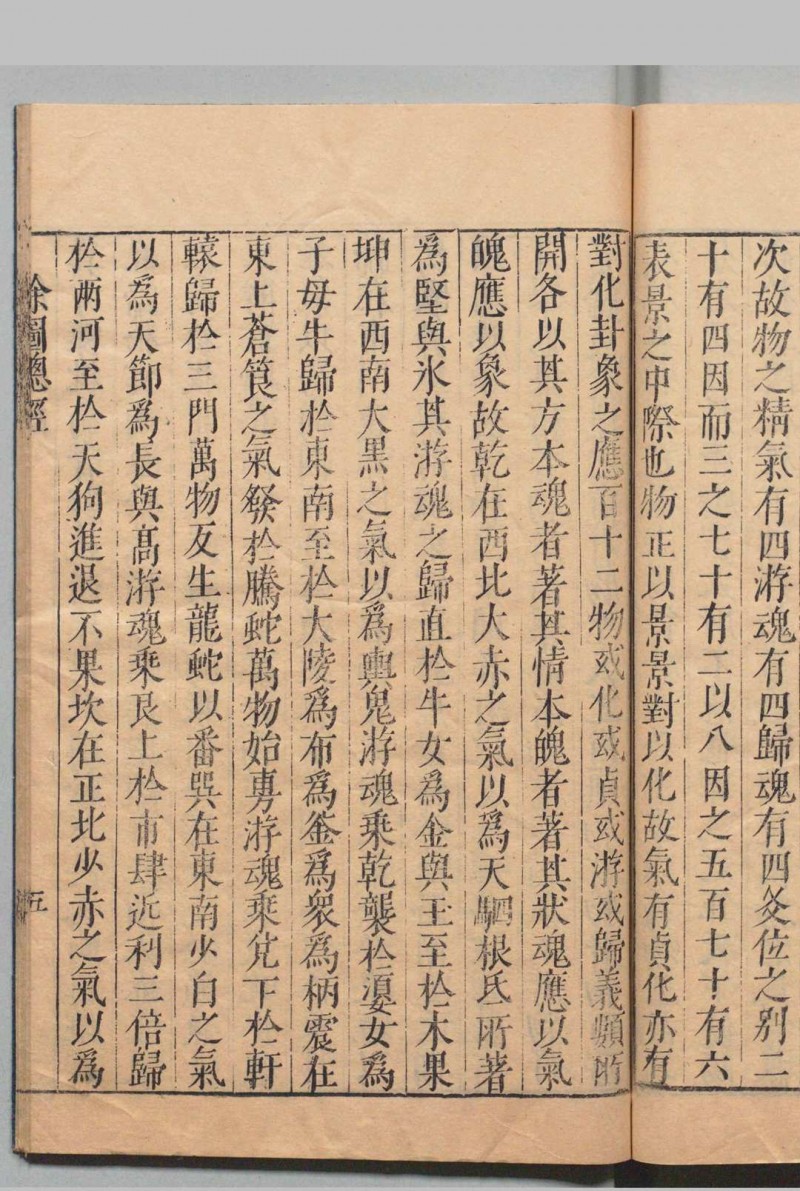 次故物之精氣有四游魂有四歸魂有四爻位之别二
十有四因而三之七十有二以八因之五百七十有六
表景之中際也物正以景景對以化故氣有貞化亦有
對化卦象之應百十二物或化或貞或游或歸義類所
開各以其方本魂者著其情本魄者著其狀魂應以氣
魄應以象故乾在西北大赤之氣以爲天駟根氐所著
爲堅與氷其游魂之歸直於牛女爲金與玉至於木果
坤在西南大黒之氣以爲輿鬼游魂乗乾襲於婺女爲
子母牛歸於東南至於大陵爲布爲釜爲衆爲柄震在
東上蒼筤之氣發於騰蛇萬物始旉游魂乗兊下於軒
轅歸於三門萬物反生龍蛇以番巽在東南少白之氣
以爲天節爲長與髙游魂乗艮上於市肆近利三倍歸
於兩河至於天狗進退不果坎在正北少赤之氣以爲
圖總經
五